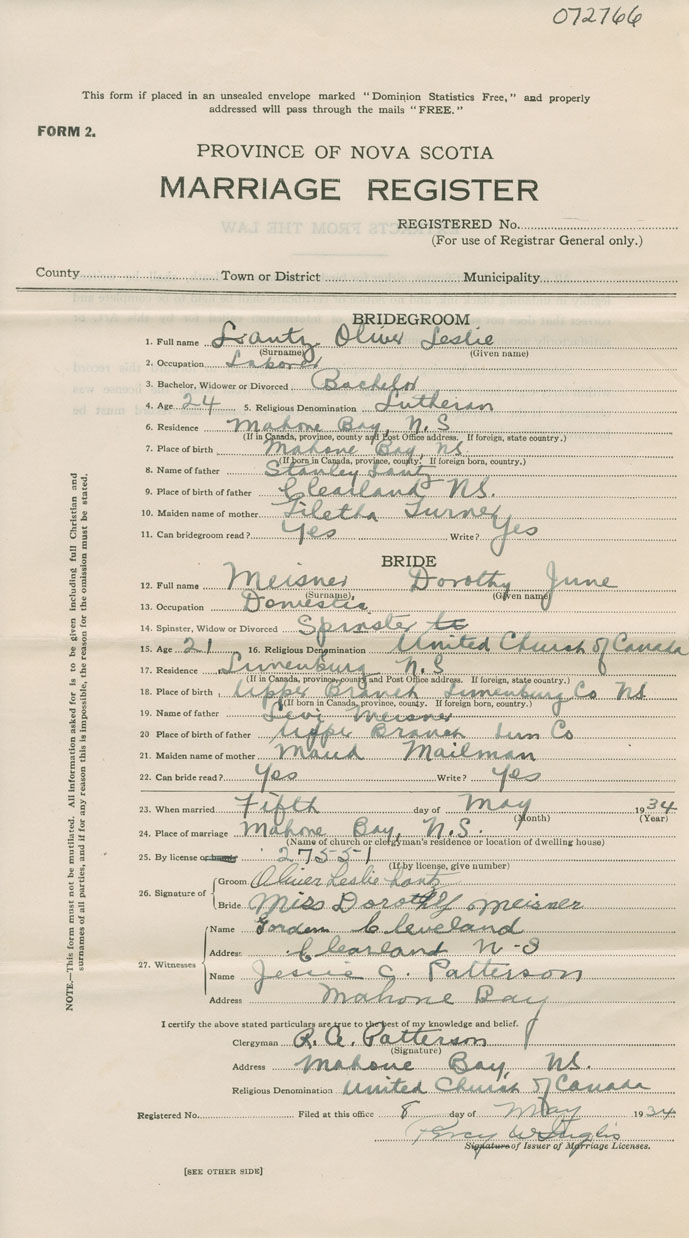 072766
This form if placed in an unsealed envelope marked "Dominion Statistics Free," and properly
addressed will pass through the mails "FREE."
FORM 2.
PROVINCE OF NOVA SCOTIA
MARRIAGE REGISTER
REGISTERED No.
(For use of Registrar General only.)
County Town or District Municipality
BRIDEGROOM
1. Full name Lantz Oliver Leslie
(Surname) (Given name)
2. Occupation Laborer
3. Bachelor, Widower or Divorced Bachelor
4. Age 24 5. Religious Denomination Lutheran
6. Residence Mahone Bay, N.S
(If in Canada, province, county and Post Office address. If foreign, state country.)
7. Place of birth Mahone Bay, NS.
(If born in Canada, province, county. If foreign born, country.)
8. Name of father Stanley Lantz
9. Place of birth of father Clearland NS.
10. Maiden name of mother Filetha Turner
11. Can bridegroom read? Yes Write? Yes
BRIDE
12. Full name Meisner Dorothy June
(Surname) (Given name)
13. Occupation Domestic
14. Spinster, Widow or Divorced Spinster
15. Age 21 16. Religious Denomination United Church of Canada
17. Residence Lunenburg N.S
(If in Canada, province, county and Post Office address. If foreign, state country.)
18. Place of birth Upper Branch Lunenburg Co NS
(If born in Canada, province, county. If foreign born, country.)
19. Name of father Levi Meisner
20 Place of birth of father Upper Branch Lun Co
21. Maiden name of mother Maud Mailman
22. Can bride read? Yes Write? Yes
23. When married Fifth day of May 1934
(Month) (Year)
24. Place of marriage Mahone Bay, N.S.
(Name of church or clergyman's residence or location of dwelling house)
25. By license or banns 27551
(If by license, give number)
26. Signature of
Groom Oliver Leslie Lantz
Bride Miss Dorothy Meisner
27. Witnesses
Name Gordon Cleveland
Address Clearland N-S
Name Jessie C. Patterson
Address Mahone Bay
NOTE.—This form must not be mutilated. All information asked for is to be given including full Christian and
surnames of all parties, and if for any reason this is impossible, the reason for the omission must be stated.
I certify the above stated particulars are true to the best of my knowledge and belief.
Clergyman R. A. Patterson
(Signature)
Address Mahone Bay, NS.
Religious Denomination United Church of Canada
Registered No. Filed at this office 8 day of May 1934
Percy W Inglis
Signature of Issuer of Marriage Licenses.
[SEE OTHER SIDE]